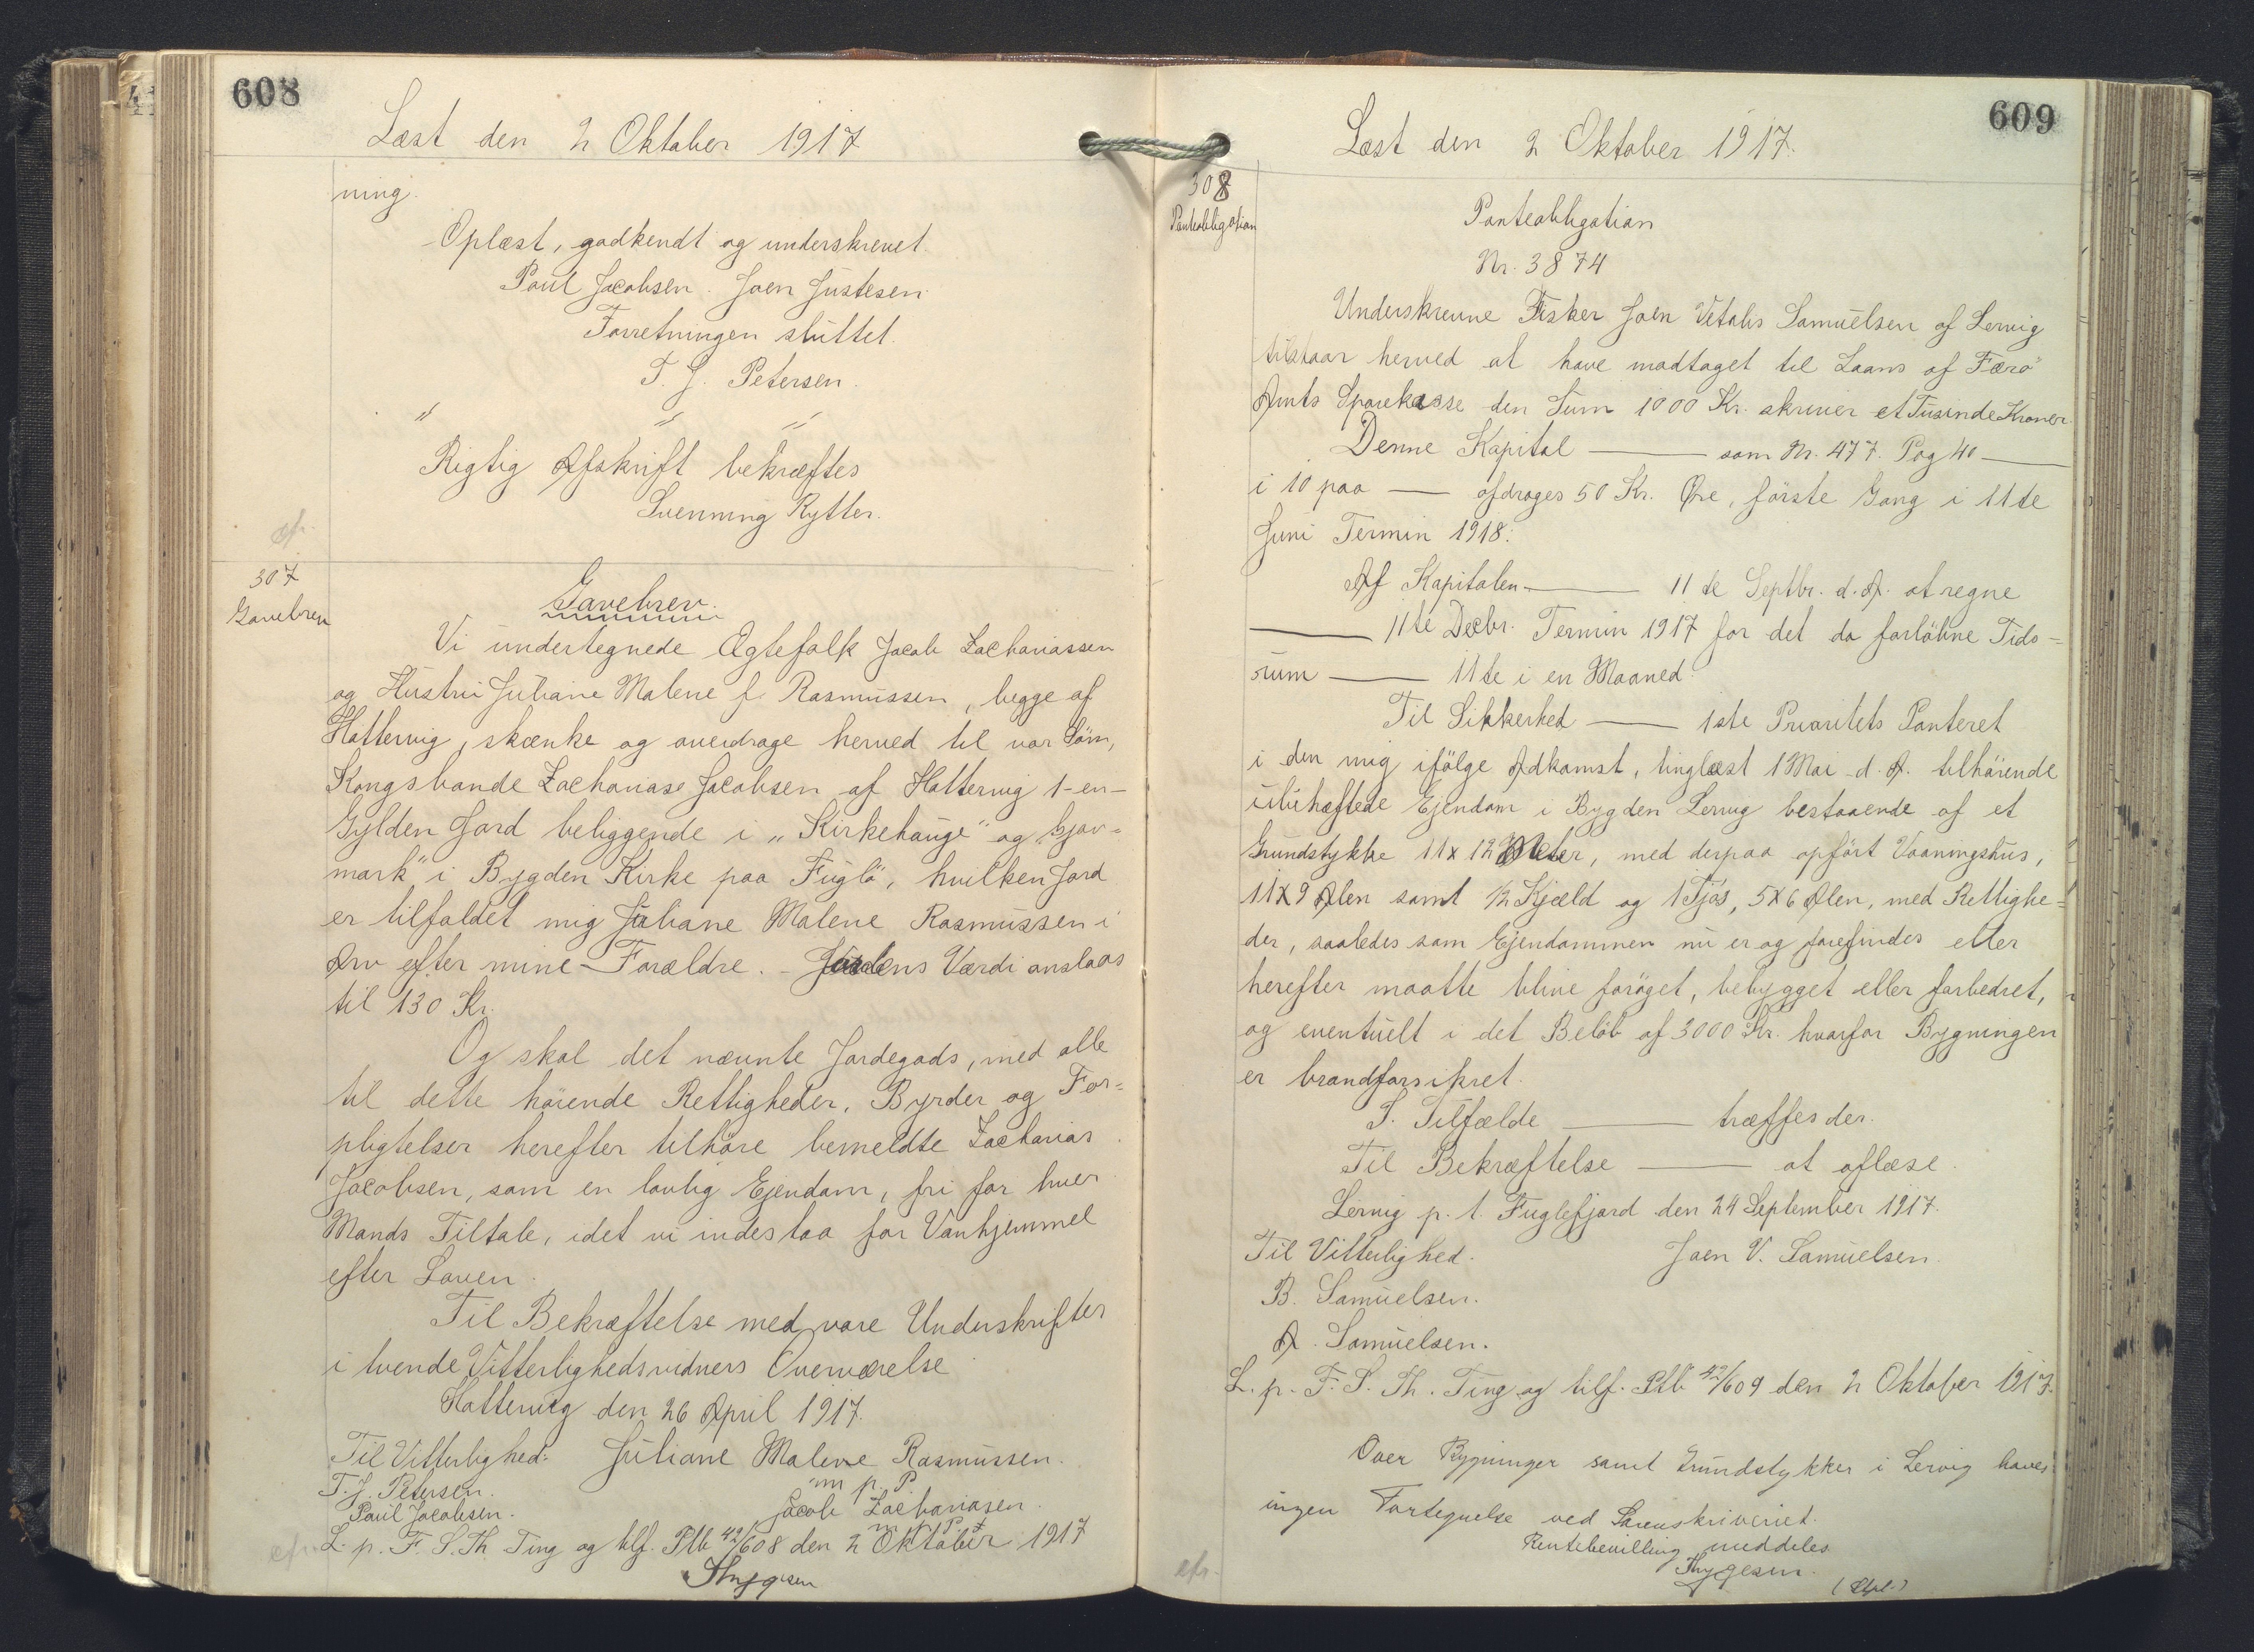 608
Læst den 2 Oktober 1917
ning.
Oplæst, godkendt og underskrevet.
Poul Jacobsen. Joen Justesen.
Forretningen sluttet.
T. J. Petersen.
" " "
Rigtig Afskrift bekræftes
Svenning Rytter.
cfr.
307
Gavebrev
Gavebrev.
Vi undertegnede Ægtefolk Jacob Zachariassen
og Hustru Juliane Malene f. Rasmussen, begge af
Hattervig, skænke og overdrage herved til vor Søn,
Kongsbonde Zacharias Jacobsen af Hattervig 1-en-
Gylden Jord beliggende i „Kirkehauge" og „Gjov=
mark" i Bygden Kirke paa Fuglö, hvilken Jord
er tilfaldet mig Juliane Malene Rasmussen i
Arv efter mine Forældre. - Jordens Værdi anslaas
til 130 Kr.
Og skal det nævnte Jordegods, med alle
til dette hörende Rettigheder, Byrder og For=
pligtelser herefter tilhöre bemeldte Zacharias
Jacobsen, som en lovlig Ejendom, fri for hver
Mands Tiltale, idet vi indestaa for Vanhjemmel
efter Loven.
Til Bekræftelse med vore Underskrifter
i tvende Vitterlighedsvidners Overværelse
Hattervig den 26 April 1917.
Til Vitterlighed: Juliane Malene Rasmussen.
T. J. Petersen. m p. P.
Poul Jacobsen. Jacob Zachariasen.
m p P
cfr. L. p. F. S. Th. Ting og tilf. Ptb 42/608 den 2 Oktober 1917
Thygesen
609
Læst den 2 Oktober 1917.
308
Panteobligation
Panteobligation
Nr. 3874
Underskrevne Fisker Joen Vitalis Samuelsen af Lervig
tilstaar herved at have modtaget til Laans af Færö
Amts Sparekasse den Sum 1000 Kr. skriver et Tusinde Kroner.
Denne Kapital ——— som Nr. 477. Pag 40 ———
i 10 paa —— afdrages 50 Kr. Øre, förste Gang i 11te
Juni Termin 1918.
Af Kapitalen ——— 11te Septbr. d. A. at regne
——— 11te Decbr. Termin 1917 for det da forlöbne Tids=
rum ——— 11te i en Maaned.
Til Sikkerhed ——— 1ste Prioritets Panteret
i den mig ifölge Adkomst, tinglæst 1 Mai d. A. tilhörende
ubehæftede Ejendom i Bygden Lervig bestaaende af et
Grundstykke 11 x 12 Meter, med derpaa opfört Vaaningshus,
11 x 9 Alen samt 1/2 Kjæld og 1 Fjós, 5 x 6 Alen, med Rettighe=
der, saaledes som Ejendommen nu er og forefindes eller
herefter maatte blive foröget, bebygget eller forbedret,
og eventuelt i det Belöb af 3000 Kr. hvorfor Bygningen
er brandforsikret.
I Tilfælde ——— træffes der.
Til Bekræftelse ——— at aflæse.
Lervig p. t. Fuglefjord den 24 September 1917.
Til Vitterlighed. Joen V. Samuelsen.
B. Samuelsen.
A. Samuelsen.
L. p. F. S. Th. Ting og tilf. Ptb 42/609 den 2 Oktober 1917.
Over Bygninger samt Grundstykker i Lervig haves
ingen Fortegnelse ved Sorenskriveriet.
Rentebevilling meddeles.
Thygesen.
cfr.